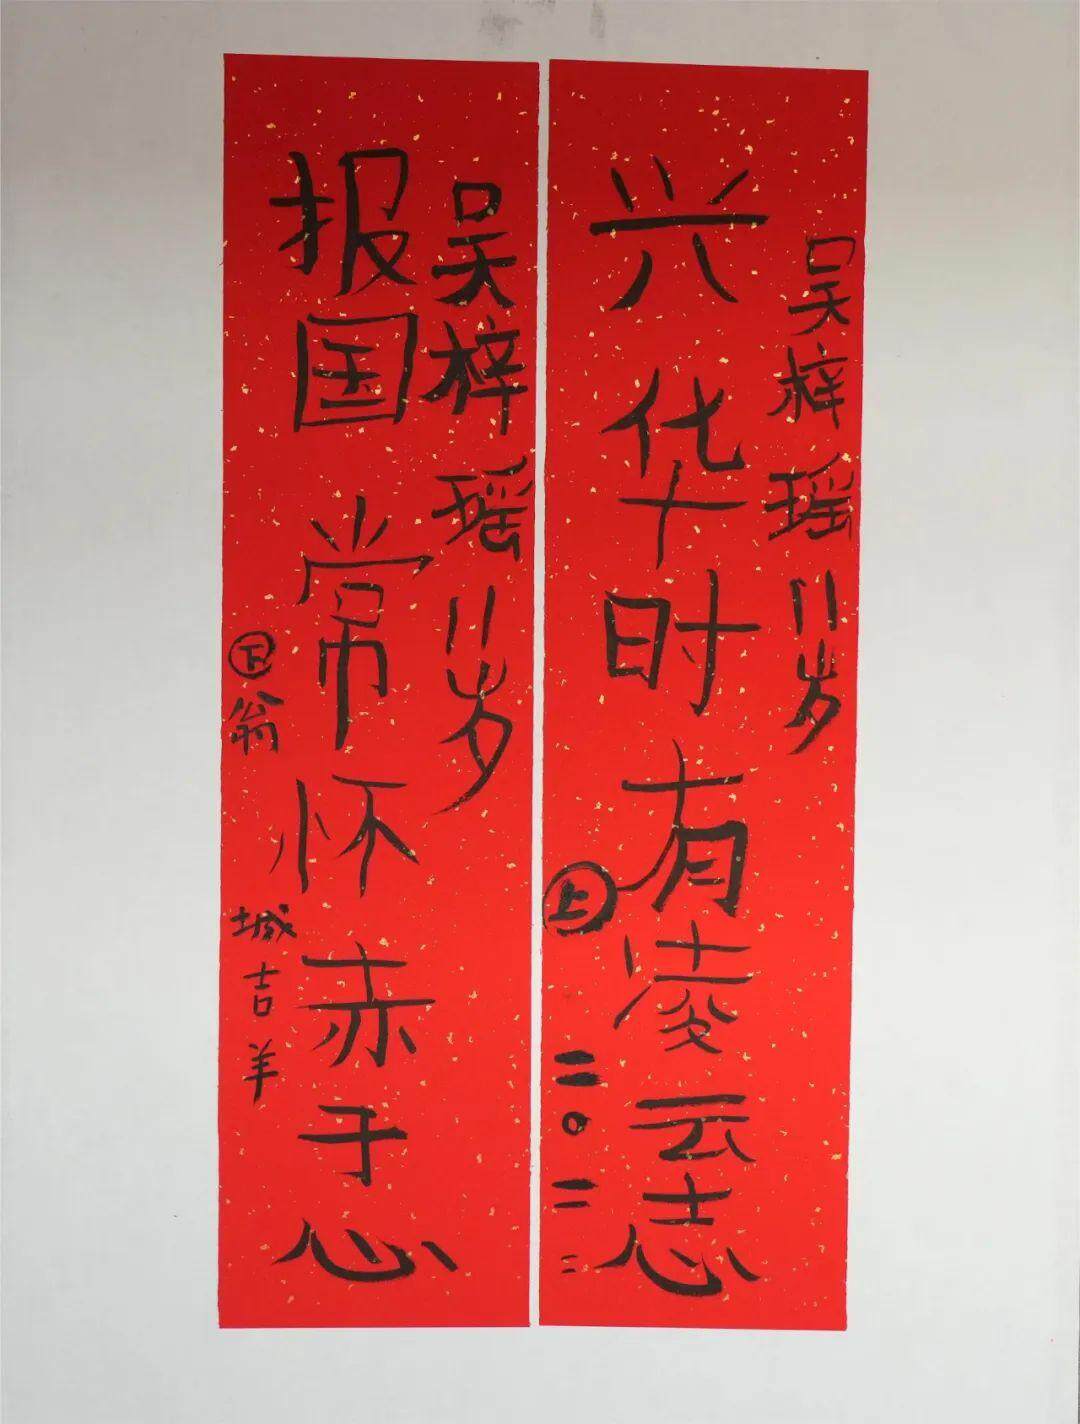 吴梓瑶 11岁
兴华时有凌云志
上 二〇二二
吴梓瑶 11岁
报国常怀赤于心
下 翁城吉羊